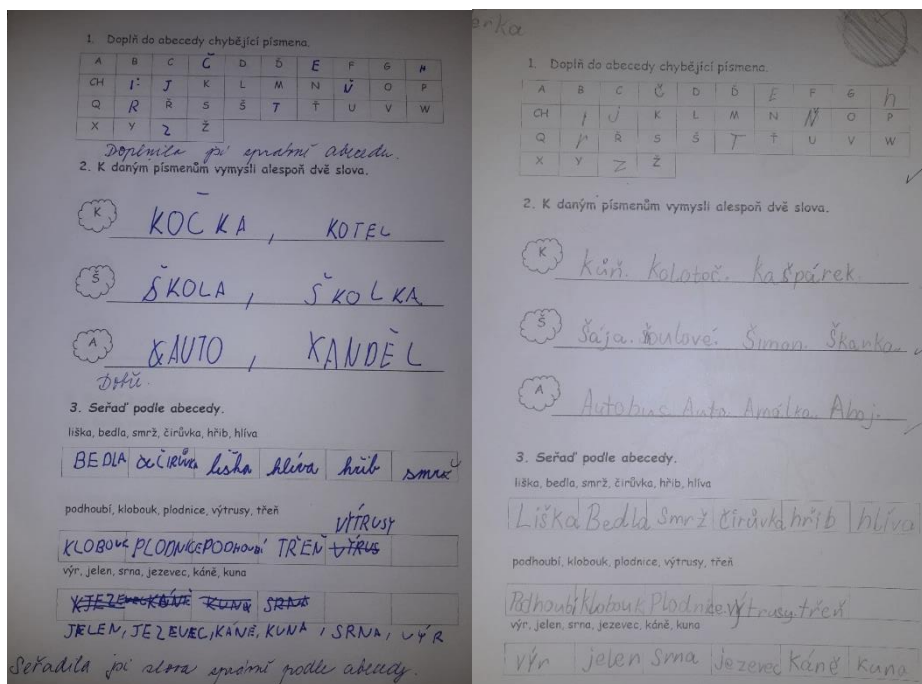 1. Doplň do abecedy chybějící písmena.
A B C Č D Ď E F G H
CH I J K L M N Ň O P
Q R Ř S Š T Ť U V W
X Y Z Ž
Doplnila jsi správně abecedu.
2. K daným písmenům vymysli alespoň dvě slova.
K KOČKA, KOTEL
Š ŠKOLA, ŠKOLKA
A AUTO, ANDĚL
Dobře.
3. Seřaď podle abecedy.
liška, bedla, smrž, čirůvka, hřib, hlíva
BEDLA ČIRŮVKA liška hlíva hřib smrž
podhoubí, klobouk, plodnice, výtrusy, třeň
VÝTRUSY
KLOBOUK PLODNICE PODHOUBÍ TŘEŇ VÝTRUS
výr, jelen, srna, jezevec, káně, kuna
JEZEVEC KÁNĚ KUNA SRNA
JELEN, JEZEVEC, KÁNĚ, KUNA, SRNA, VÝR
Seřadila jsi slova správně podle abecedy.
erka
1. Doplň do abecedy chybějící písmena.
A B C Č D Ď E F G h
CH I J K L M N Ň O P
Q r Ř S Š T Ť U V W
X Y Z Ž
2. K daným písmenům vymysli alespoň dvě slova.
K Kůň. Kolotoč. Kašpárek.
Š Šája. Šoulové. Šimon. Škarka.
A Autobus Auto. Amálka. Ahoj.
3. Seřaď podle abecedy.
liška, bedla, smrž, čirůvka, hřib, hlíva
Liška Bedla Smrž čirůvka hřib hlíva
podhoubí, klobouk, plodnice, výtrusy, třeň
Podhoubí Klobouk Plodnice výtrusy třeň
výr, jelen, srna, jezevec, káně, kuna
výr jelen Srna jezevec Káně Kuna